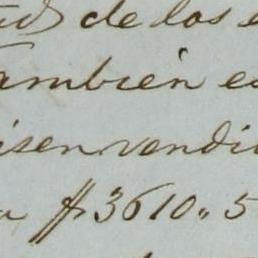 tud de los e
también es
isen vendi
a $3610.. 5